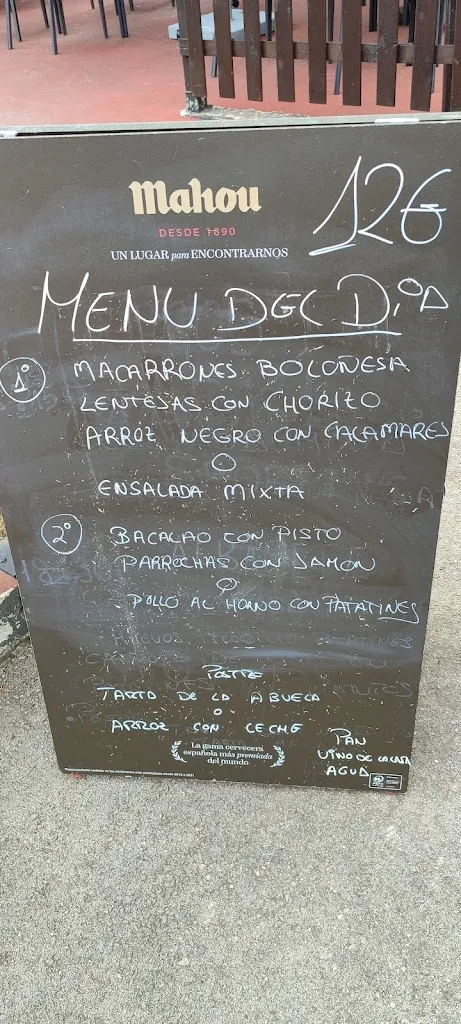 Mahou
DESDE 1890
UN LUGAR para ENCONTRARNOS
12€
MENU DEL DIA
1º
MACARRONES BOLOÑESA
LENTEJAS CON CHORIZO
ARROZ NEGRO CON CALAMARES
O
ENSALADA MIXTA
2º
BACALAO CON PISTO
PARROCHAS CON JAMON
O
POLLO AL HORNO CON PATATINES
POSTRE
TARTA DE LA ABUELA
O
ARROZ CON LECHE
PAN
VINO DE LA CASA
AGUA
La gama cervecera
española más premiada
del mundo